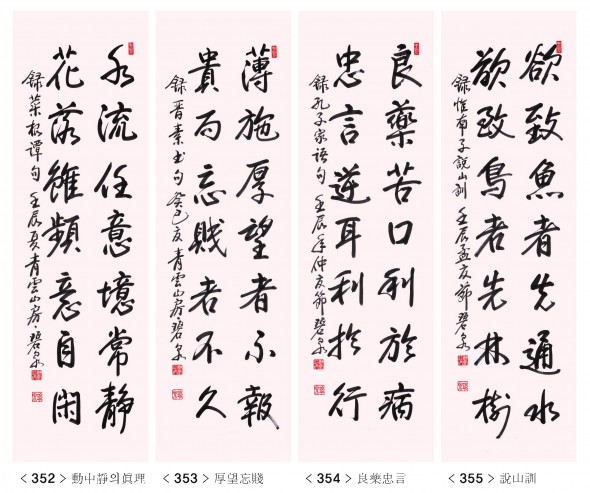 水流任意境常靜
花落雖頻意自閑
錄菜根譚句 壬辰夏青雲山房·碧泉
< 352 > 動中靜의眞理
薄施厚望者不報
貴而忘賤者不久
錄晋素書句 癸巳夏青雲山房·碧泉
< 353 > 厚望忘賤
良藥苦口利於病
忠言逆耳利於行
錄孔子家語句 壬辰年仲夏節碧泉
< 354 > 良藥忠言
欲致魚者先通水
欲致鳥者先林樹
錄惟南子說山訓 壬辰孟夏節碧泉
< 355 > 說山訓